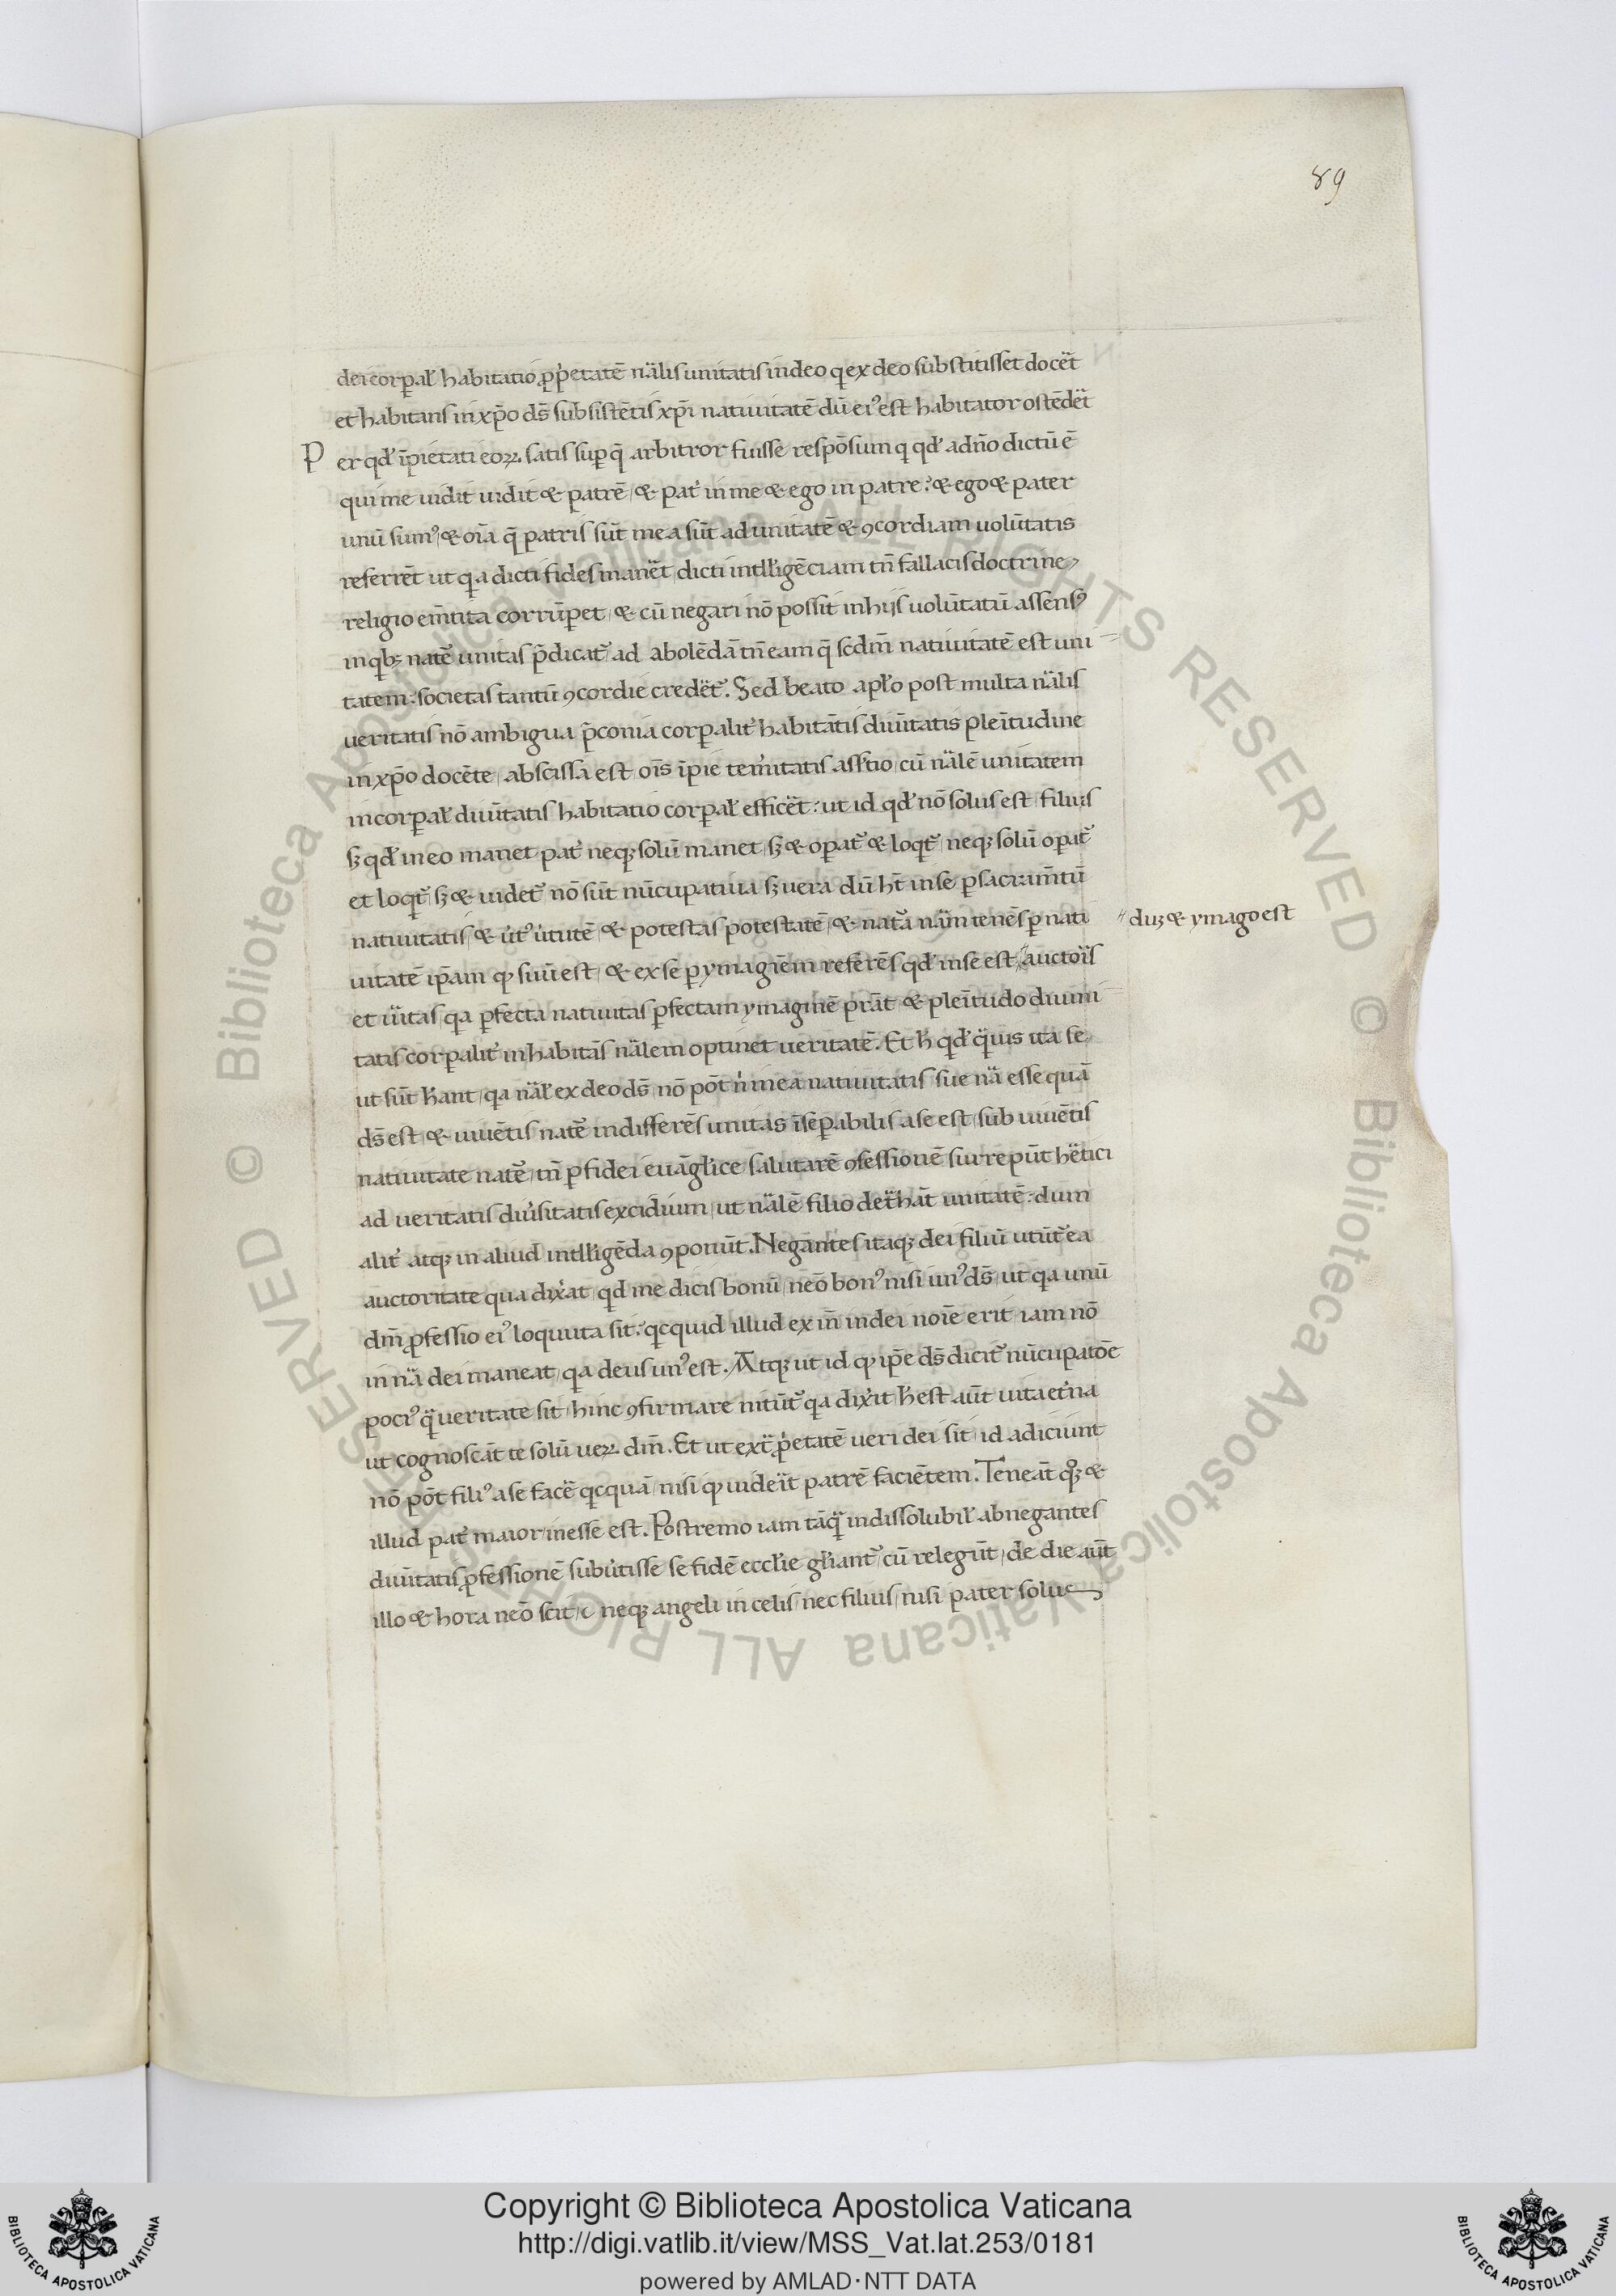 89
dei corꝑal̉ habitatio ꝓp̉etatē nälis unitatis in deo q ex deo substitisset docët
et habitans in xp̄o ds̄ subsistētis xp̄i nativitatē dū ei᾿ est habitator ostēdët
Per qd̉ īpietati eoꝝ satis suꝑ q̄ arbitror fuisse respōsum q qd̉ a dn̄o dictū ē
qui me vidit vidit & patrē / & pat̉ in me & ego in patre : & ego & pater
unū sum᾿ / & oīa q̄ patris sūt mea sūt ad unitatē & ꝯcordiam volūtatis
referrēt ut qa dicti fides manët / dicti intll̉igēciam tn̄ fallacis doctrine
religio em̄tita corrūꝑet / & cū negari nō possit in hijs volūtatū assens᾿
in qb; natē᾿ unitas p̄dicat᾿ ad abolēdā tn̄ eam q̄ scdm̄ nativitatē est uni
tatem : societas tantū ꝯcordie credët᾿. Sed beato apl̉o post multa nälis
veritatis nō ambigua p̄conia corꝑalit̉ habitātis diūtatis pleītudine
in xp̄o docēte / abscissa est oīs īpie tem̉itatis ass̉tio / cū nälē unitatem
incorꝑal̉ diūtatis habitatio corꝑal̉ efficët : ut id qd̉ nō solus est filius
sꝫ qd̉ in eo manet pat̉ neqꝫ solū manet / sꝫ & oꝑat᾿ & loqt᾿ / neqꝫ solū oꝑat᾿
et loqt᾿ / sꝫ & videt᾿ nō sūt nūcupativa sꝫ vera dū ht̄ in se ꝑ sacram̄tū
nativitatis / & v̉t᾿ v̉tutē / & potestas potestatē / & nat᾿a näm tenēs ꝑ nati
vitatē ip̄am q᾿ suū est / & ex se ꝑ ymagiēm referēs qd̉ in se est // auctoïs
duꝫ & ymago est
et ūitas qa ꝑfecta nativitas ꝑfectam ymaginē prāt & pleītudo divini
tatis corꝑalit̉ inhabitās nälem optinet veritatē. Et h̉ qd̉ q̈vis ita se
ut sūt h̉ant / qa näl̉ ex deo ds̄ nō pōt n̉ in ea nativitatis sue nä esse quā
ds̄ est / & vivētis natē᾿ indifferēs unitas īseꝑabilis a se est / sub vivētis
nativitate natē᾿ / tn̄ ꝑ fidei evāgl̉ice salutarē ꝯfessionē surrepūt hëtici
ad veritatis div̉sitatis excidium / ut nälē filio det̉hāt unitatē : dum
alit̉ atqꝫ in aliud intll̉igēda ꝯponūt. Negantes itaqꝫ dei filiū utūt᾿ ea
auctoritate qua dix̉at / qd me dicis bonū / neō bon᾿ nisi un᾿ ds̄ / ut qa unū
dm̄ ꝓfessio ei᾿ loquuta sit : qcquid illud ex in̄ in dei noīe erit iam nō
in nä dei maneat / qa deus un᾿ est. Atqꝫ ut id q᾿ ip̄e ds̄ dicit᾿ nūcupatōe
poci᾿ q̈ veritate sit / hinc ꝯfirmare nitūt᾿ qa dix̉it / h̉ est aūt vita et̉na
ut cognoscāt te solū veꝝ dm̄. Et ut ext̉ ꝓp̉etatē veri dei sit / id adiciunt
nō pōt fili᾿ a se facē᾿ qcquā / nisi q᾿ videït patrē faciētem. Teneāt qꝫ᾿ &
illud pat̉ maior me esse est. Postremo iam tāq̈ indissolubil̉ abnegantes
diūtatis ꝓfessionē subv̉tisse se fidē eccl̉ie gl̉iant᾿ cū relegūt / de die aūt
illo & hora neō scit / neqꝫ angeli in celis / nec filius / nisi pater solus
© Biblioteca Apostolica Vaticana ALL RIGHTS RESERVED © Biblioteca Apostolica Vaticana ALL RIGHTS RESERVED
Copyright © Biblioteca Apostolica Vaticana
http://digi.vatlib.it/view/MSS_Vat.lat.253/0181
powered by AMLAD·NTT DATA
BIBLIOTECA APOSTOLICA VATICANA
BIBLIOTECA APOSTOLICA VATICANA